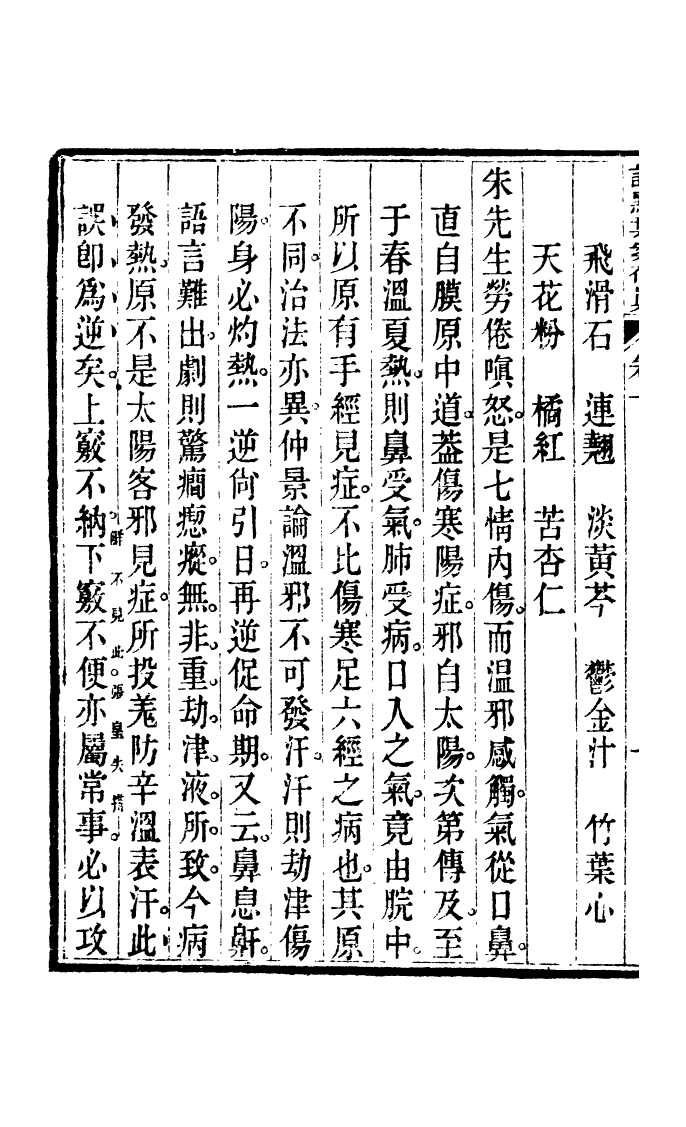 飛滑石　連翹　淡黃芩　鬱金汁　竹葉心
天花粉　橘紅　苦杏仁
朱先生勞倦嗔怒。是七情內傷。而溫邪感觸。氣從口鼻。
直自膜原中道。葢傷寒陽症。邪自太陽。次第傳及。至
于春溫夏熱。則鼻受氣。肺受病。口入之氣。竟由脘中。
所以原有手經見症。不比傷寒足六經之病也。其原
不同。治法亦異。仲景論溫邪不可發汗。汗則劫津傷
陽。身必灼熱。一逆尙引日。再逆促命期。又云。鼻息鼾。
語言難出。劇則驚癎瘛瘲。無非重劫津液。所致。今病
發熱。原不是太陽客邪見症。所投羗防辛溫表汗。此
誤卽爲逆矣。上竅不納。下竅不便。亦屬常事。必以攻
不見此。張皇失措